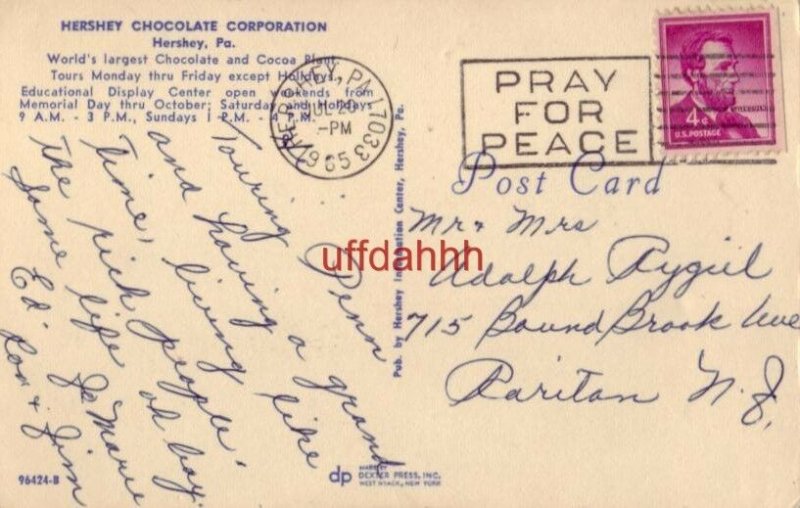 HERSHEY CHOCOLATE CORPORATION
Hershey, Pa.
World's largest Chocolate and Cocoa Plant
Tours Monday thru Friday except Holidays.
Educational Display Center open weekends from
Memorial Day thru October; Saturday and Holidays
9 A.M. - 3 P.M., Sundays 1 P.M. - 4 P.M.
HERSHEY, PA 17033
JUL 20
-PM
1965
PRAY
FOR
PEACE
4¢
U.S. POSTAGE
Post Card
Touring Penn
and having a grand
time, living like
the rich people.
Same life oh boy.
Ed. Jo Marie
Ron & Jim
uffdahhh
Mr & Mrs
Adolph Rygiel
715 Bound Brook Ave
Raritan N.J.
Pub. by Hershey Information Center, Hershey, Pa.
96424-B
dp
DEXTER PRESS, INC.
WEST NYACK, NEW YORK